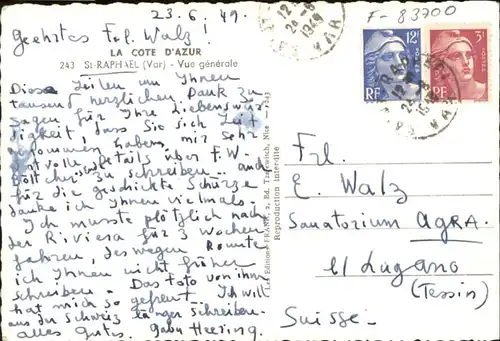 23.6.49.
F-83700
Geehrtes Frl. Walz!
LA COTE D'AZUR
243 St-RAPHAEL (Var) - Vue générale
Diese Zeilen um Ihnen
tausend herzlichen Dank zu
sagen für Ihre Liebenswür
digkeit, dass Sie sich Zeit
genommen haben, mir sehr
wertvolle Details über F.W.
zu schreiben. auch
für die geschickte Schürze
danke ich Ihnen vielmals.
Ich musste plötzlich nach
der Riviera für 3 Wochen
fahren, deswegen konnte
ich Ihnen nicht früher
schreiben. Das Foto von ihm
hat mich so gefreut. Ich will
aus der Schweiz länger schreiben.
alles Gutes. Gaby Heering.
Reproduction interdite
12F
RF
3F
RF
Frl.
E. Walz
Sanatorium AGRA
ü/Lugano
(Tessin)
Suisse.